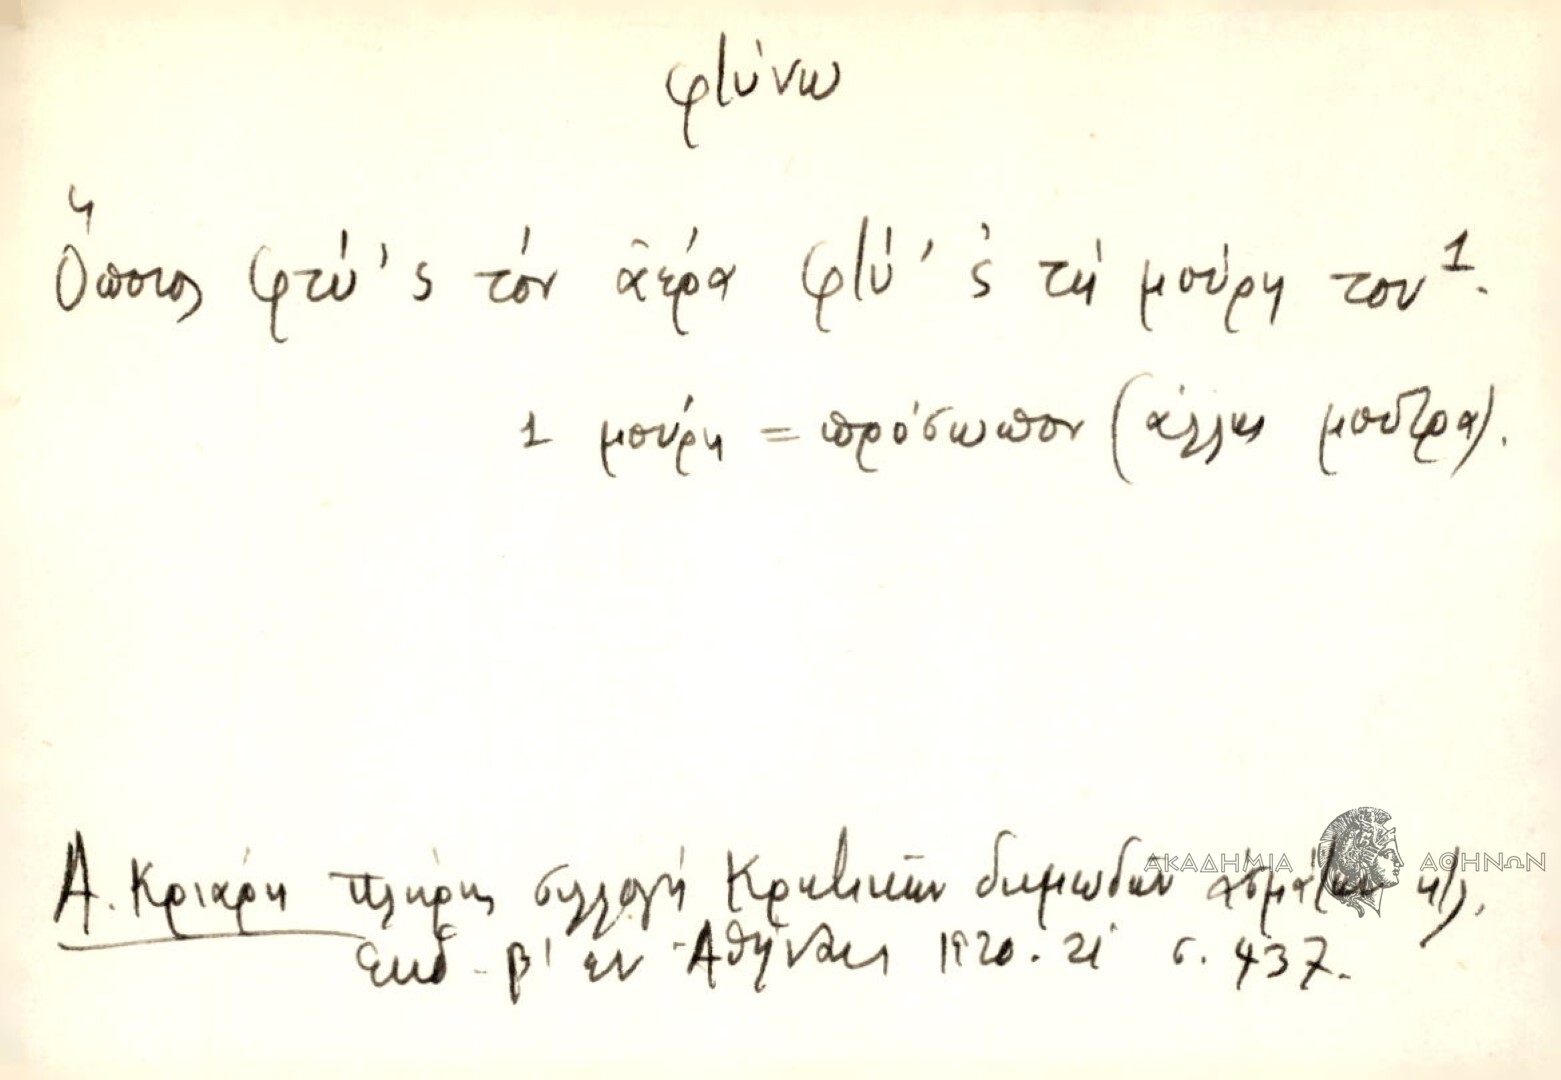 φτύνω
Ὅποιος φτύ' ς τὸν ἀέρα φτύ' ς τὴ μούρη του¹.
1 μούρη = πρόσωπον (ἄλλως μούτρα).
Α. Κριάρη Πλήρης συλλογή Κρητικῶν δημωδῶν ἀσμάτων κτλ.
Ἐκδ. β' ἐν Ἀθήναις 1920. 21 σ. 437.
ΑΚΑΔΗΜΙΑ ΑΘΗΝΩΝ